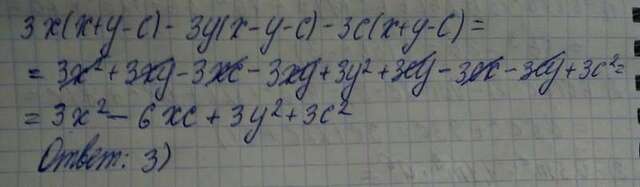 3x(x+y-c) - 3y(x-y-c) - 3c(x+y-c) =
= 3x² + 3xy - 3xc - 3xy + 3y² + 3cy - 3cx - 3cy + 3c² =
= 3x² - 6xc + 3y² + 3c²
Ответ: 3)